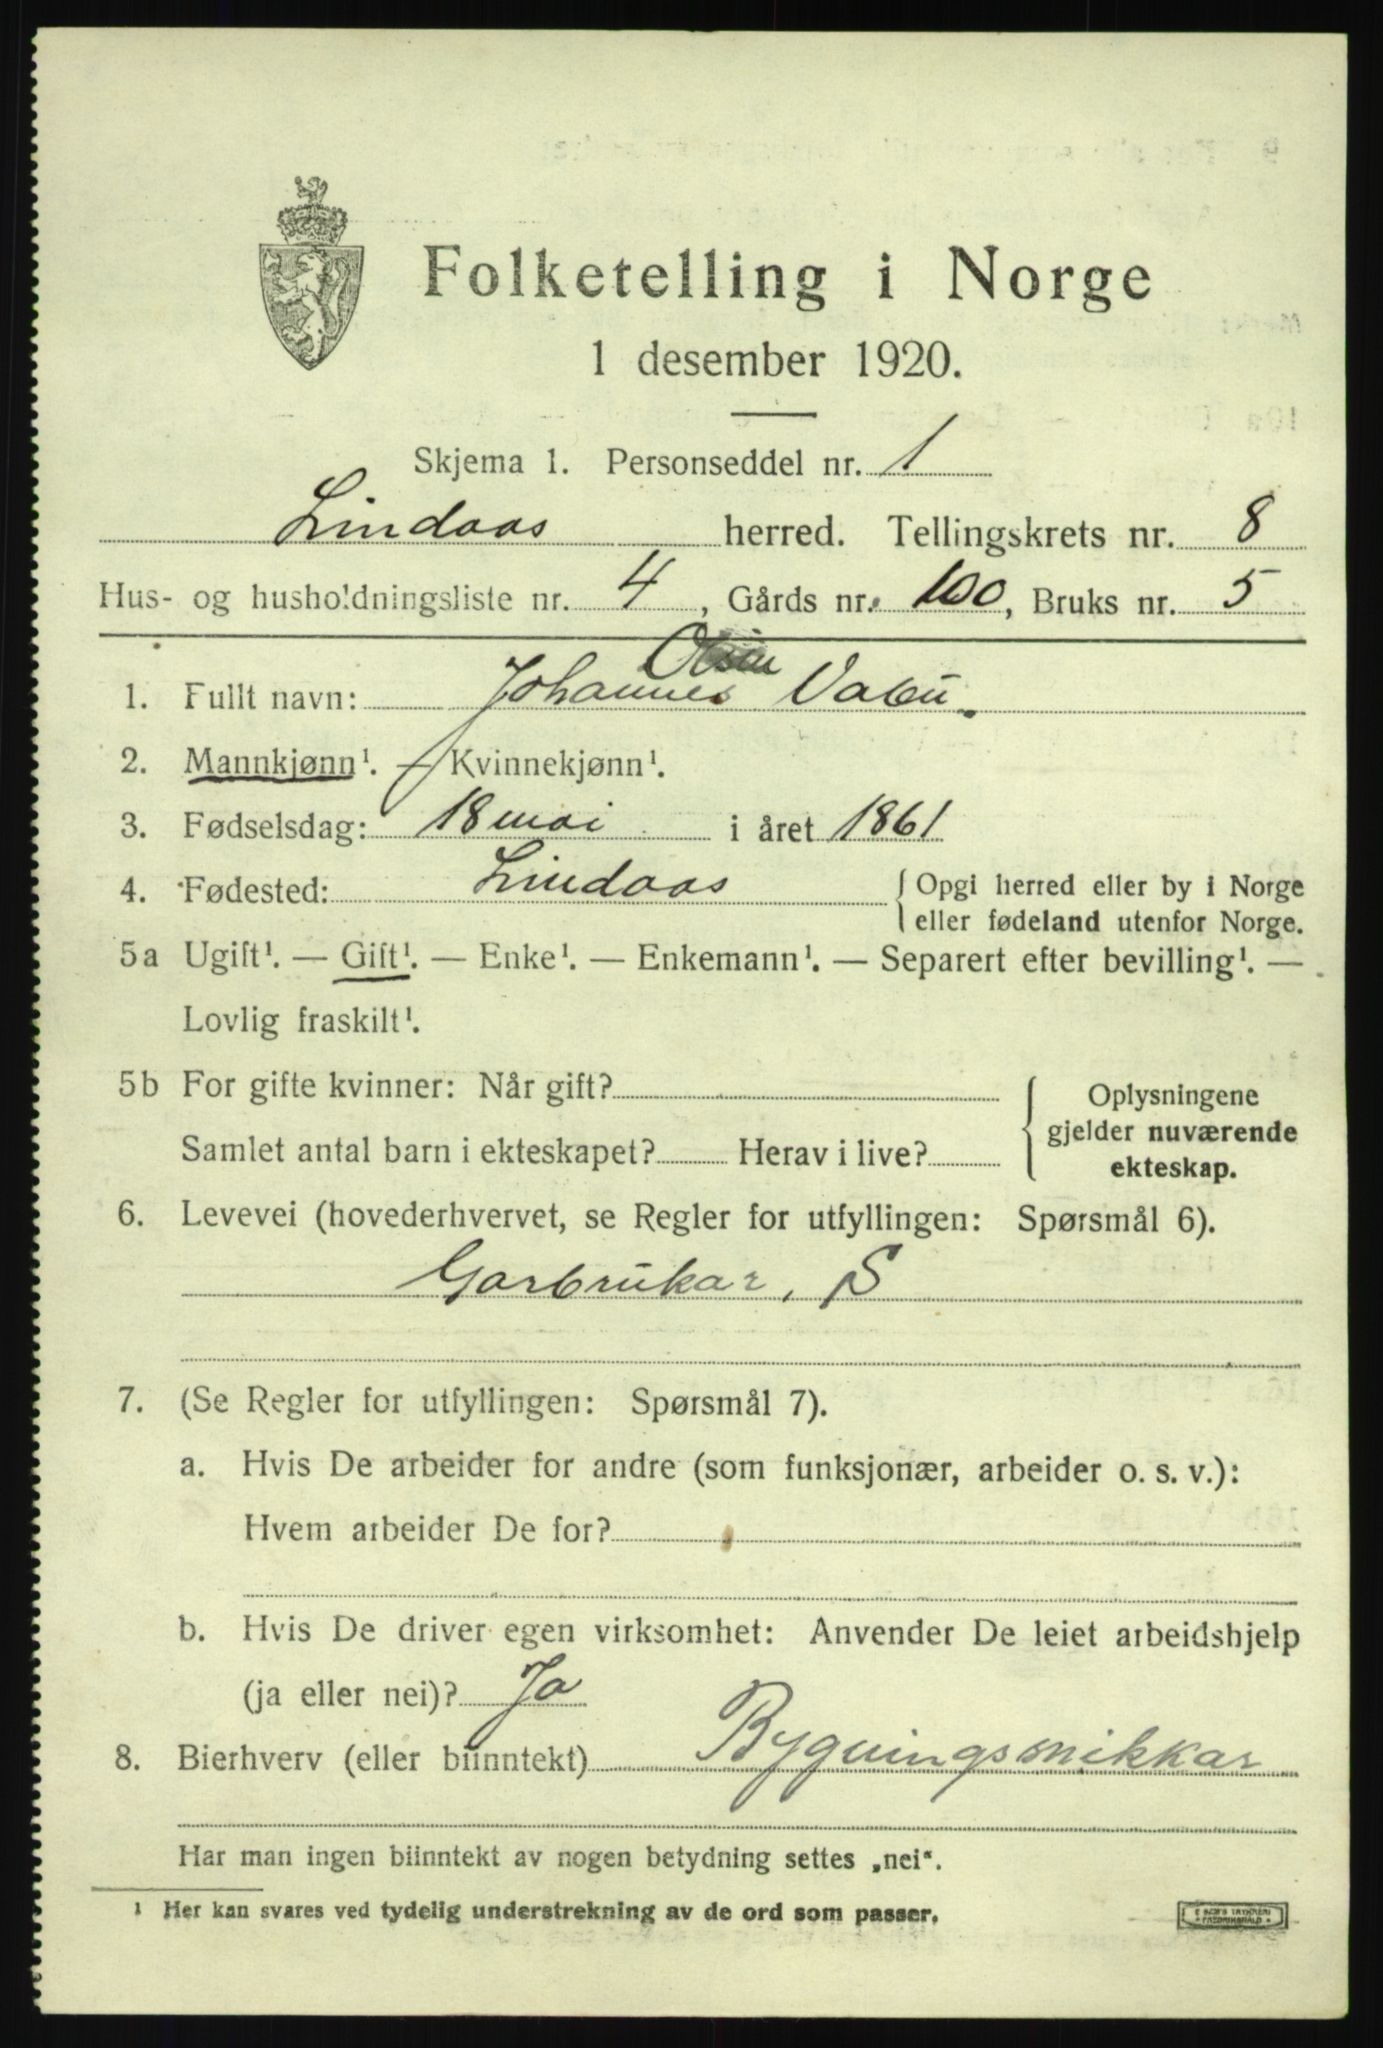 Folketelling i Norge
1 desember 1920.
Skjema 1. Personseddel nr. 1
Lindaas herred. Tellingskrets nr. 8
Hus- og husholdningsliste nr. 4, Gårds nr. 100, Bruks nr. 5
Olsen
1. Fullt navn: Johannes Vabu.
2. Mannkjønn¹. — Kvinnekjønn¹.
3. Fødselsdag: 18 mai i året 1861
4. Fødested: Lindaas { Opgi herred eller by i Norge
eller fødeland utenfor Norge.
5a Ugift¹. — Gift¹. — Enke¹. — Enkemann¹. — Separert efter bevilling¹. —
Lovlig fraskilt¹.
5b For gifte kvinner: Når gift? { Oplysningene
gjelder nuværende
Samlet antal barn i ekteskapet? Herav i live?
ekteskap.
6. Levevei (hovederhvervet, se Regler for utfyllingen: Spørsmål 6).
Garbrukar, S
7. (Se Regler for utfyllingen: Spørsmål 7).
a. Hvis De arbeider for andre (som funksjonær, arbeider o. s. v.):
Hvem arbeider De for?
b. Hvis De driver egen virksomhet: Anvender De leiet arbeidshjelp
(ja eller nei)? Ja
8. Bierhverv (eller biinntekt) Bygningsnikkar
Har man ingen biinntekt av nogen betydning settes „nei“.
¹ Her kan svares ved tydelig understrekning av de ord som passer.